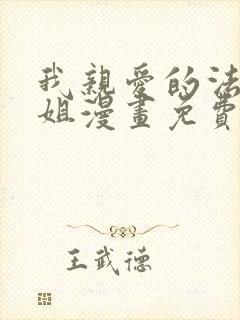 我親愛的法
姐漫畫免費
王武德